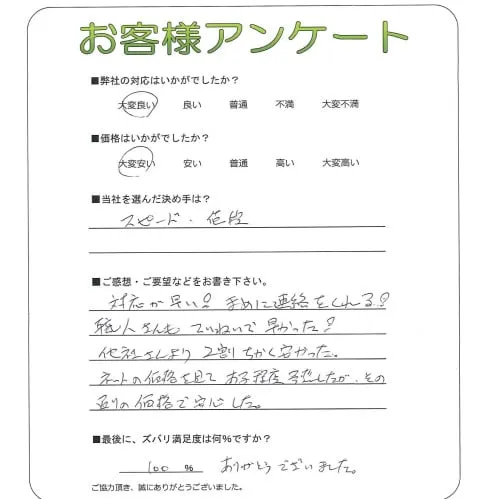 お客様アンケート
■弊社の対応はいかがでしたか？
大変良い 良い 普通 不満 大変不満
■価格はいかがでしたか？
大変安い 安い 普通 高い 大変高い
■当社を選んだ決め手は？
スピード・値段
■ご感想・ご要望などをお書き下さい。
対応が早い！ まめに連絡をくれる！
職人さんも ていねいで 早かった！
他社さんより 2割ちかく安かった。
ネットの価格を見て ある程度予想したが、その
通りの価格で安心した。
■最後に、ズバリ満足度は何%ですか？
100 % ありがとうございました。
ご協力頂き、誠にありがとうございました。